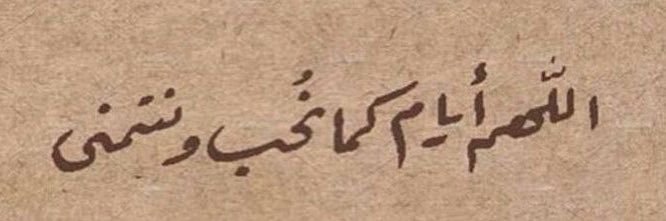 اللّهم أيام كما نُحب ونتمنى